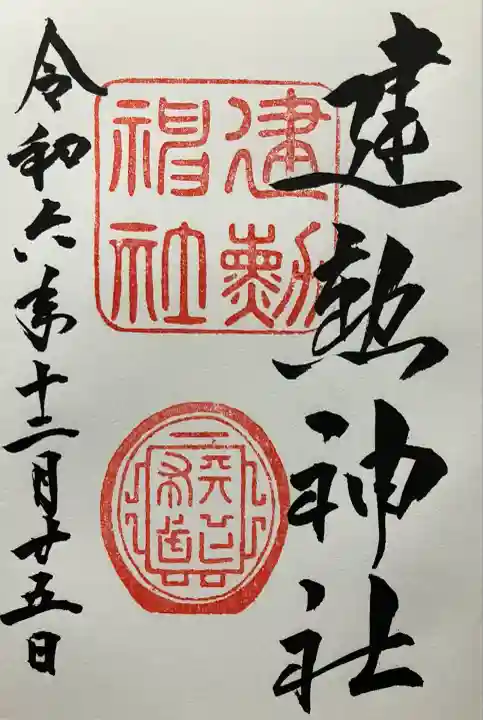 建勲神社
建勲
神社
令和六年十二月廿五日